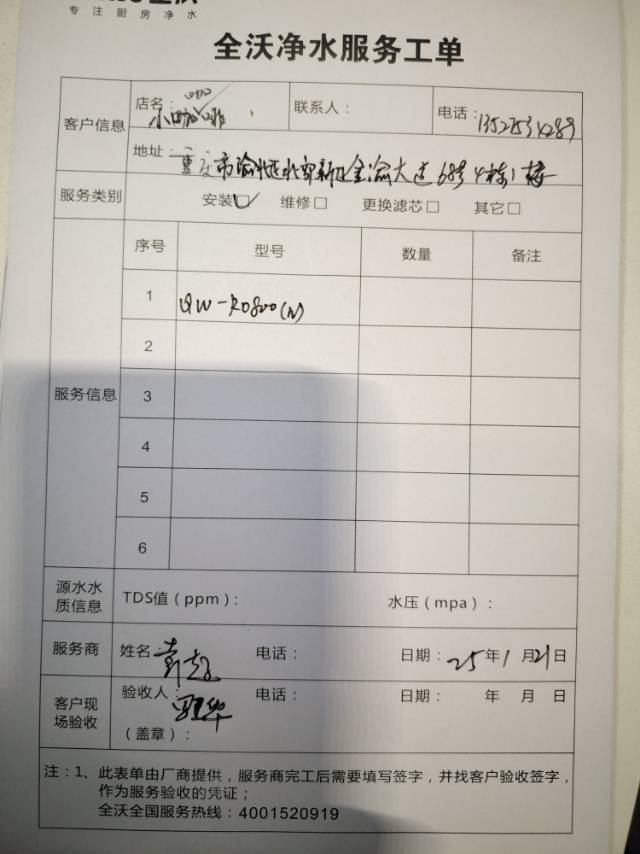 专注厨房净水
全沃净水服务工单
客户信息
店名：小咖啡
联系人：
电话：
地址：重庆市渝北区北部新区金渝大道68号4栋1楼
服务类别
安装☑ 维修□ 更换滤芯□ 其它□
服务信息
序号 型号 数量 备注
1 QW-RO800(N)
2
3
4
5
6
源水水质信息
TDS值（ppm）： 水压（mpa）：
服务商
姓名 电话： 日期：25年1月21日
客户现场验收
验收人： 电话： 日期： 年 月 日
（盖章）：
注：1、此表单由厂商提供，服务商完工后需要填写签字，并找客户验收签字，
作为服务验收的凭证；
全沃全国服务热线：4001520919